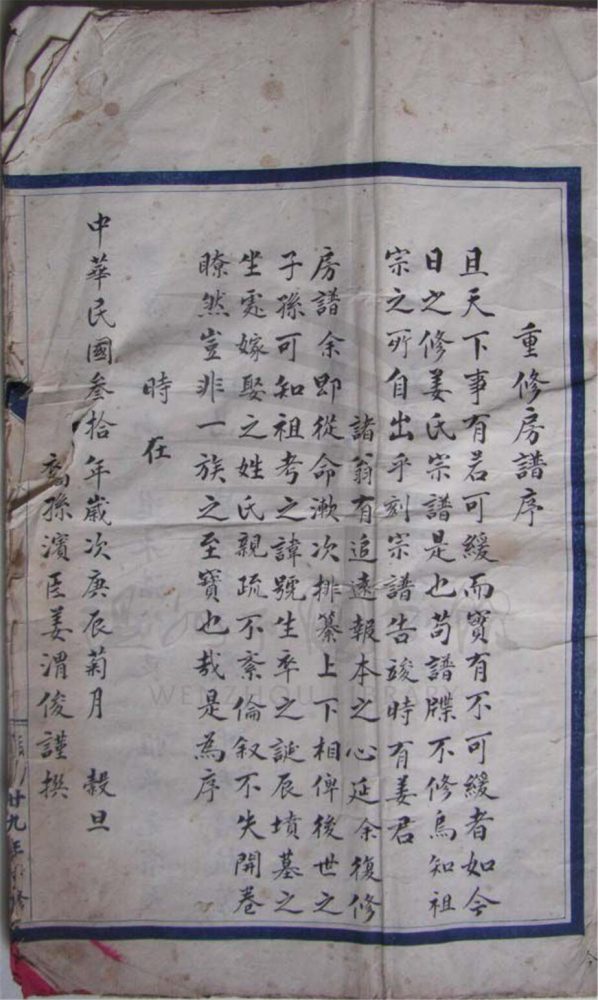 重修房譜序
且天下事有若可緩而實有不可緩者如今
日之修姜氏宗譜是也苟譜牒不修烏知祖
宗之所自出乎刻宗譜告竣時有姜君
諸翁有追遠報本之心延余復修
房譜余即從命漱次排纂上下相俾後世之
子孫可知祖考之諱號生卒之誕辰墳墓之
坐處嫁娶之姓氏親疏不紊倫叙不失開卷
瞭然豈非一族之至寶也哉是為序
時在
中華民國叁拾年歲次庚辰菊月 穀旦
裔孫濱臣姜渭俊謹撰
廿九年
WENZHOU LIBRARY